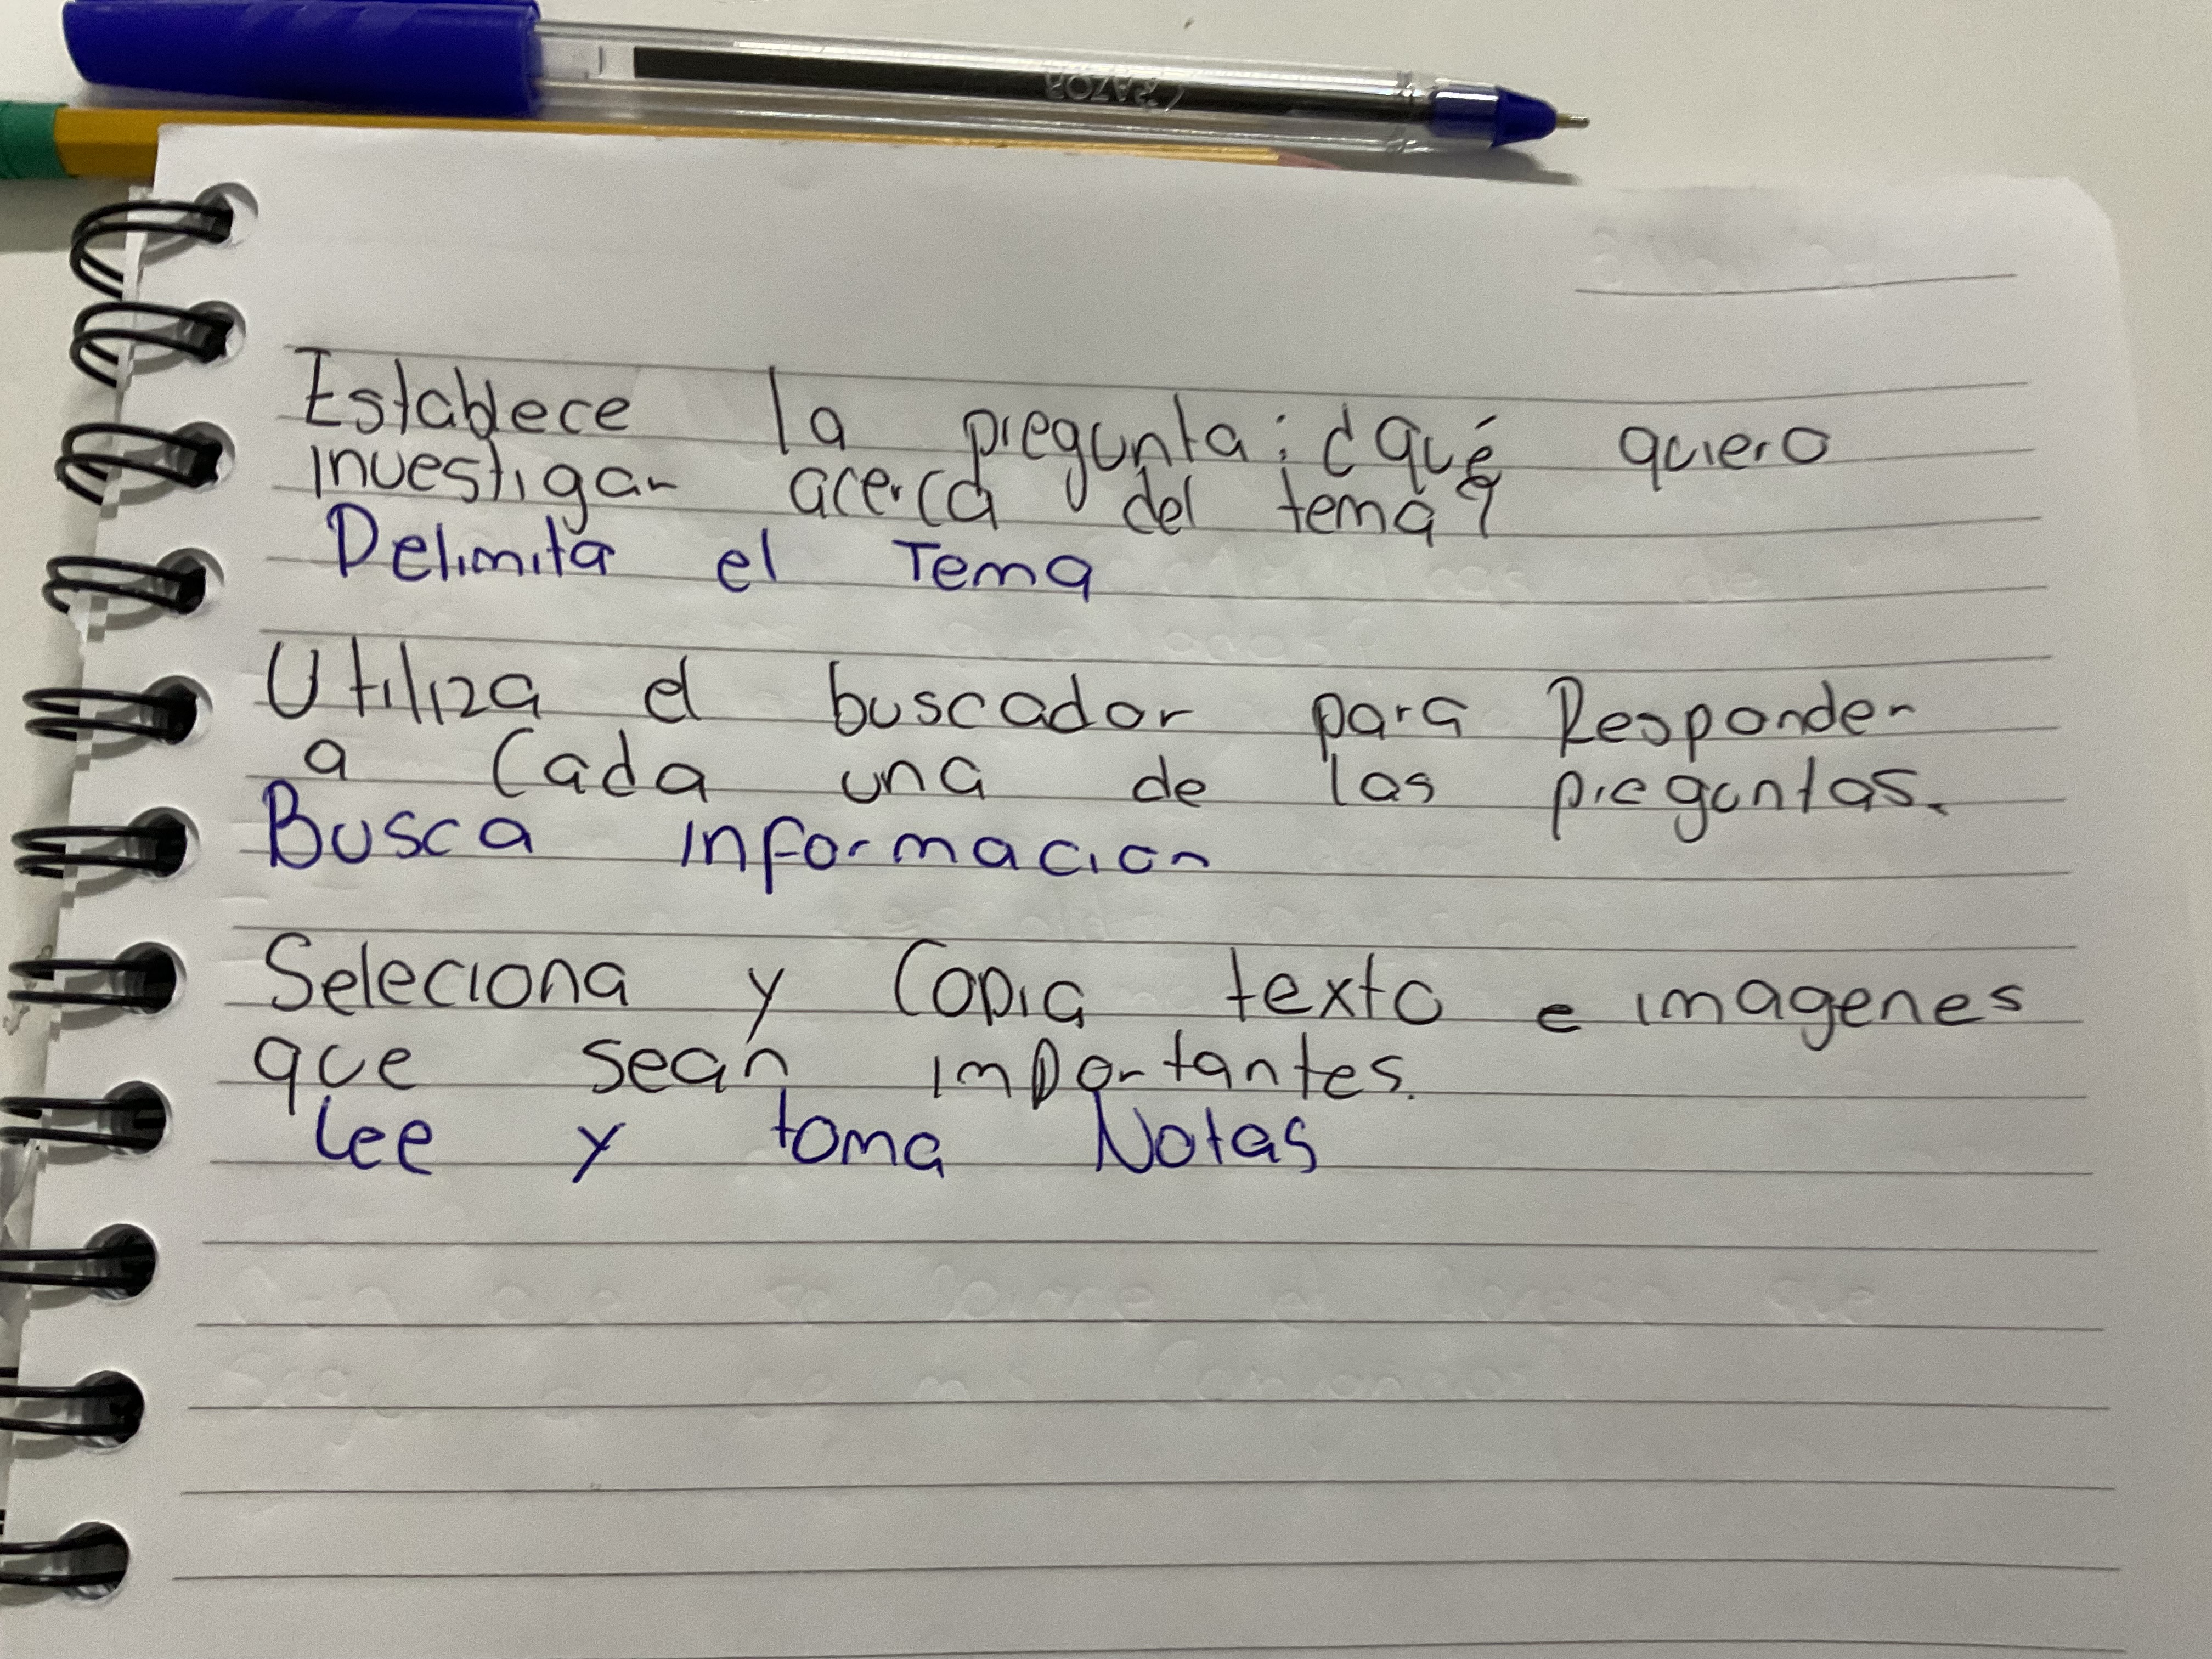 RAZOR
Establece la pregunta: ¿qué quiero
investigar acerca del tema?
Delimita el Tema
Utiliza el buscador para Responder
a Cada una de las preguntas.
Busca informacion
Seleciona y Copia texto e imagenes
que sean importantes.
Lee y toma Notas